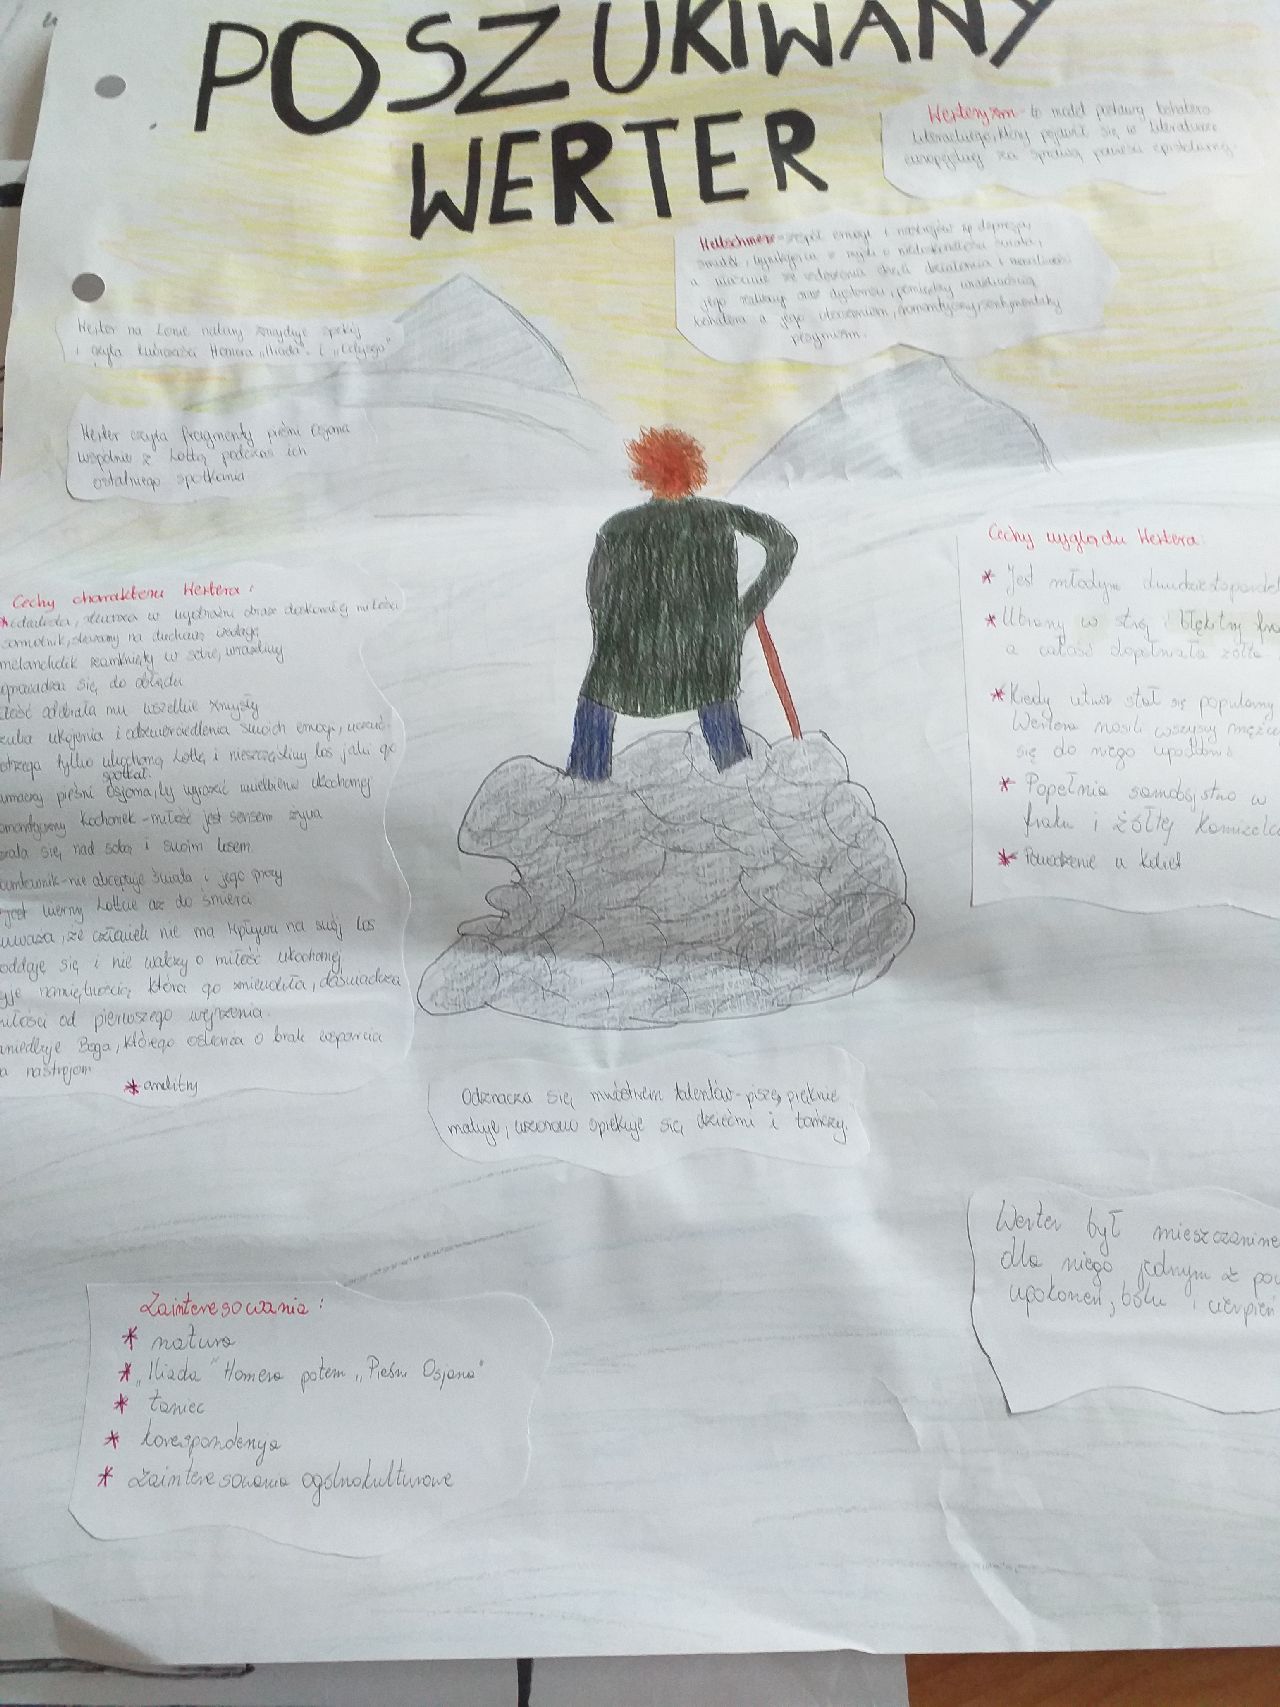 POSZUKIWANY
WERTER
Werteryzm - to model postawy bohatera
literackiego, który pojawił się w literaturze
europejskiej za sprawą powieści epistolarnej
Weltschmerz - zespół emocji i nastrojów np depresja,
smutek, wynikająca z myśli o niedoskonałości świata,
a chęci działania i
jego oraz pomiędzy wrażliwością
bohatera a jego otoczeniem, romantyczny, sentymentalny
pesymizm.
Werter na łonie natury znajduje spokój
i czyta twórczości Homera „Iliada" i „Odyseja"
Werter czyta fragmenty pieśni Osjana
wspólnie z Lottą podczas ich
ostatniego spotkania
Cechy charakteru Wertera:
stwarza w wyobraźni obraz doskonałej miłości
samotnik, skazany na duchową
melancholik zamknięty w sobie, wrażliwy
doprowadza się do obłędu
odebrała mu wszelkie zmysły
ukojenia i odzwierciedlenia swoich emocji, uczuć
tylko ukochaną Lottę i nieszczęśliwy los jaki go
spotkał.
pieśni Osjana, by wyrazić uwielbienie ukochanej
romantyczny kochanek - miłość jest sensem życia
się nad sobą i swoim losem
buntownik - nie akceptuje świata i jego prawy
jest wierny Lottcie aż do śmierci
uważa, że człowiek nie ma wpływu na swój los
poddaje się i nie walczy o miłość ukochanej
namiętnością, która go zniewoliła, doświadcza
miłości od pierwszego wejrzenia.
Boga, którego oskarża o brak wsparcia
nastrojom
* ambitny
Cechy wyglądu Wertera:
* Jest młodym
* Ubrany w strój: błękitny
a całość dopełniała żółta
* Kiedy utwór stał się popularny
Wertera nosili wszyscy
się do niego upodobnić
* Popełnia samobójstwo w
fraku i żółtej
* Powodzenie u kobiet
Odznacza się mnóstwem talentów - pisze, pięknie
maluje, wzorowo opiekuje się dziećmi i tańczy.
Werter był
dla niego jednym z
upokorzeń, bólu i
Zainteresowania:
* natura
* „Iliada" Homera potem „Pieśni Osjana"
* taniec
* korespondencja
* zainteresowania ogólnokulturowe